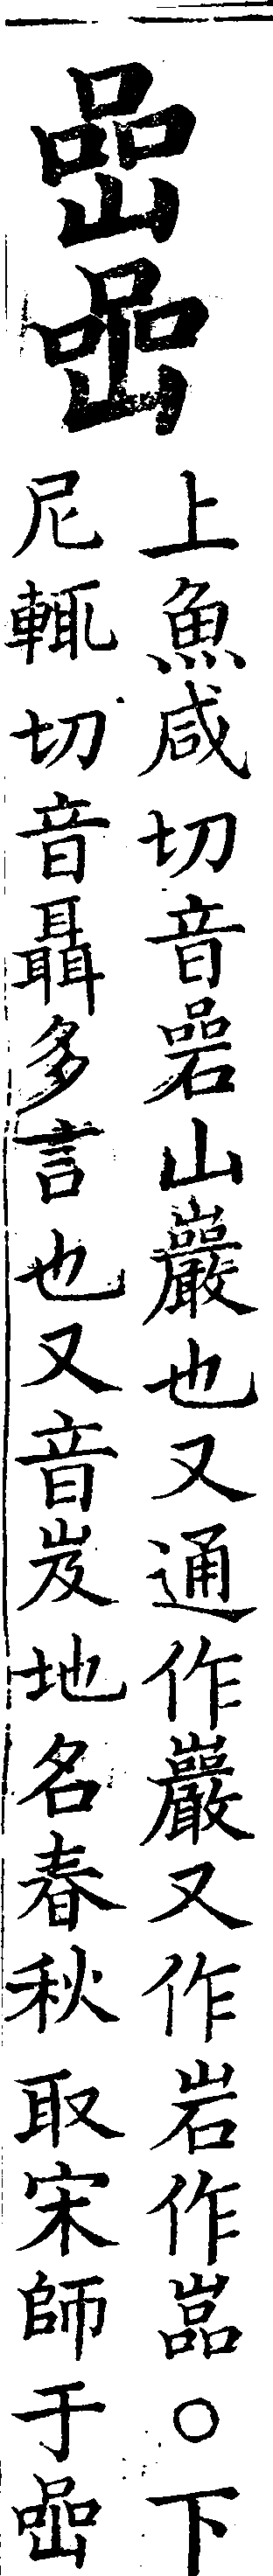 嵒喦
上魚咸切音碞山巖也又通作巖又作岩作嵓○下
尼輒切音聶多言也又音岌地名春秋取宋師于喦